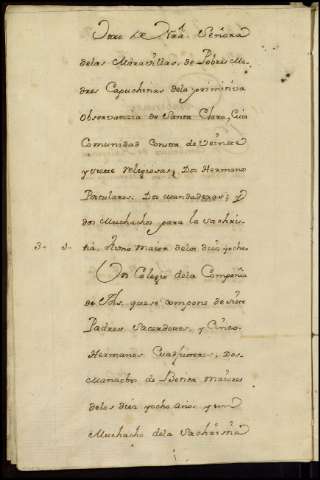 Otro de Ntrâ. Señora
delas Maravillas, de Pobres Ma-
dres Capuchinas dela primitiva
observancia de Santa Clara, Cuia
Comunidad Consta de veinte
y siete religiosas, Dos Hermanos
Dos mandaderos; y
dos Muchachos para la Sachris-
3. tiâ, Uno maior delos diez yocho.
Un Colegio dela Compañia
de Jhs. que se compone de siete
Padres Sacerdotes, y Cinco
Hermanos Cuadjutores, Dos
de maiores
delos diez yocho años, y un
Muchacho dela Sachristia